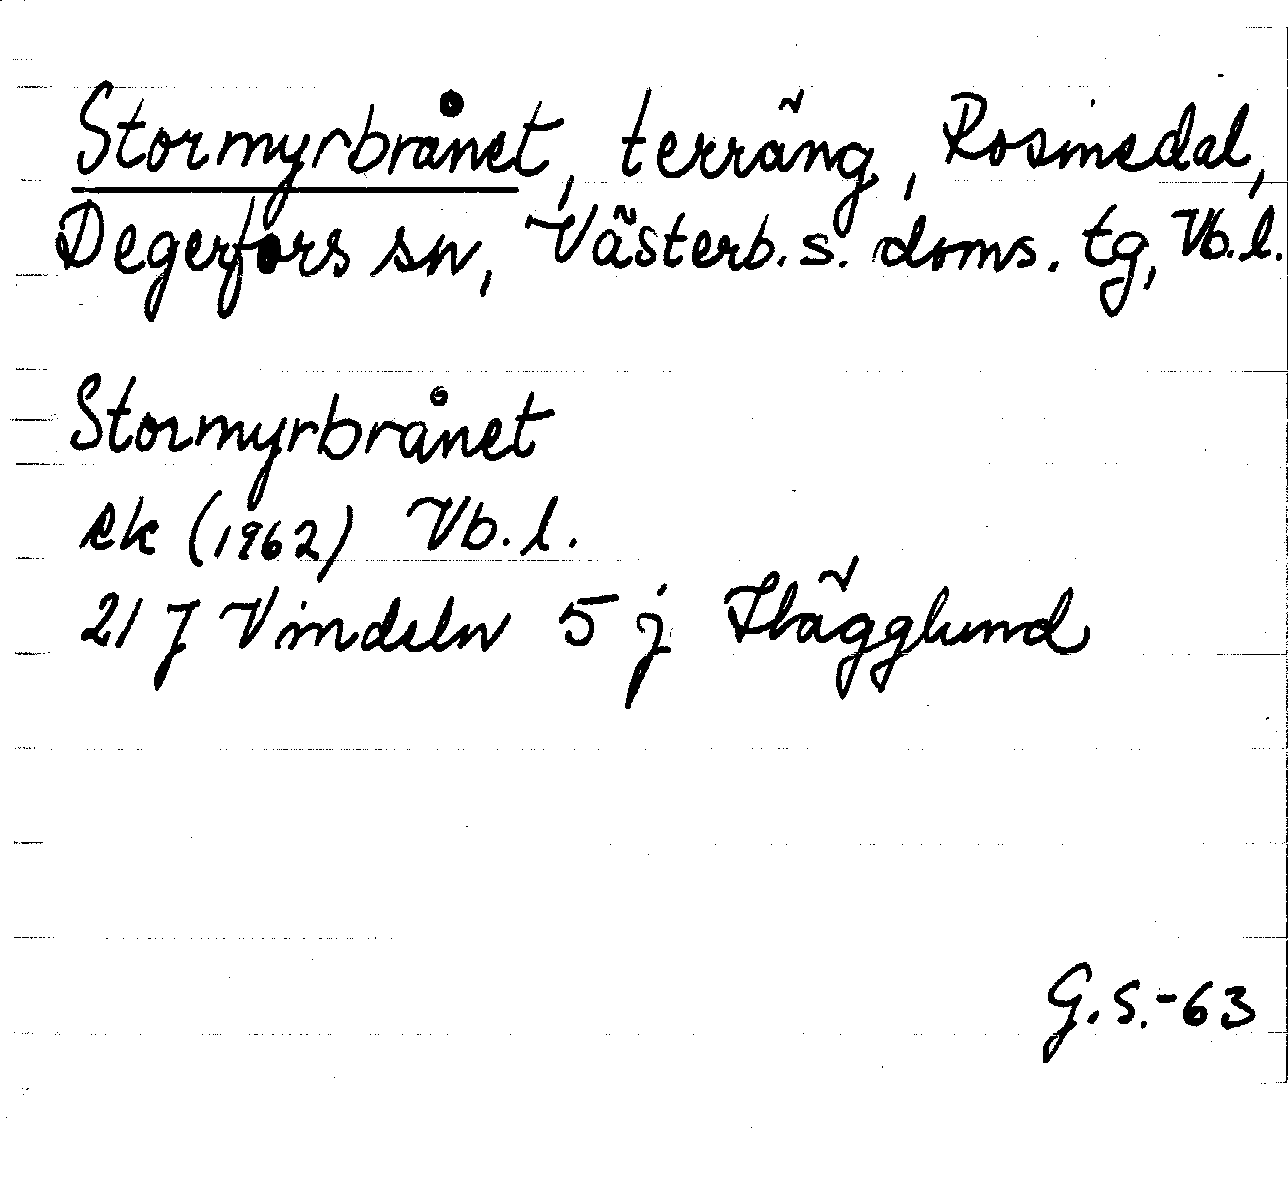 Stormyrbrånet, terräng, Rosinedal,
Degerfors sn, Västerb. s. doms. tg, Vb. l.
Stormyrbrånet
rk (1962) Vb. l.
21 J Vindeln 5 j Hägglund
G.S.-63